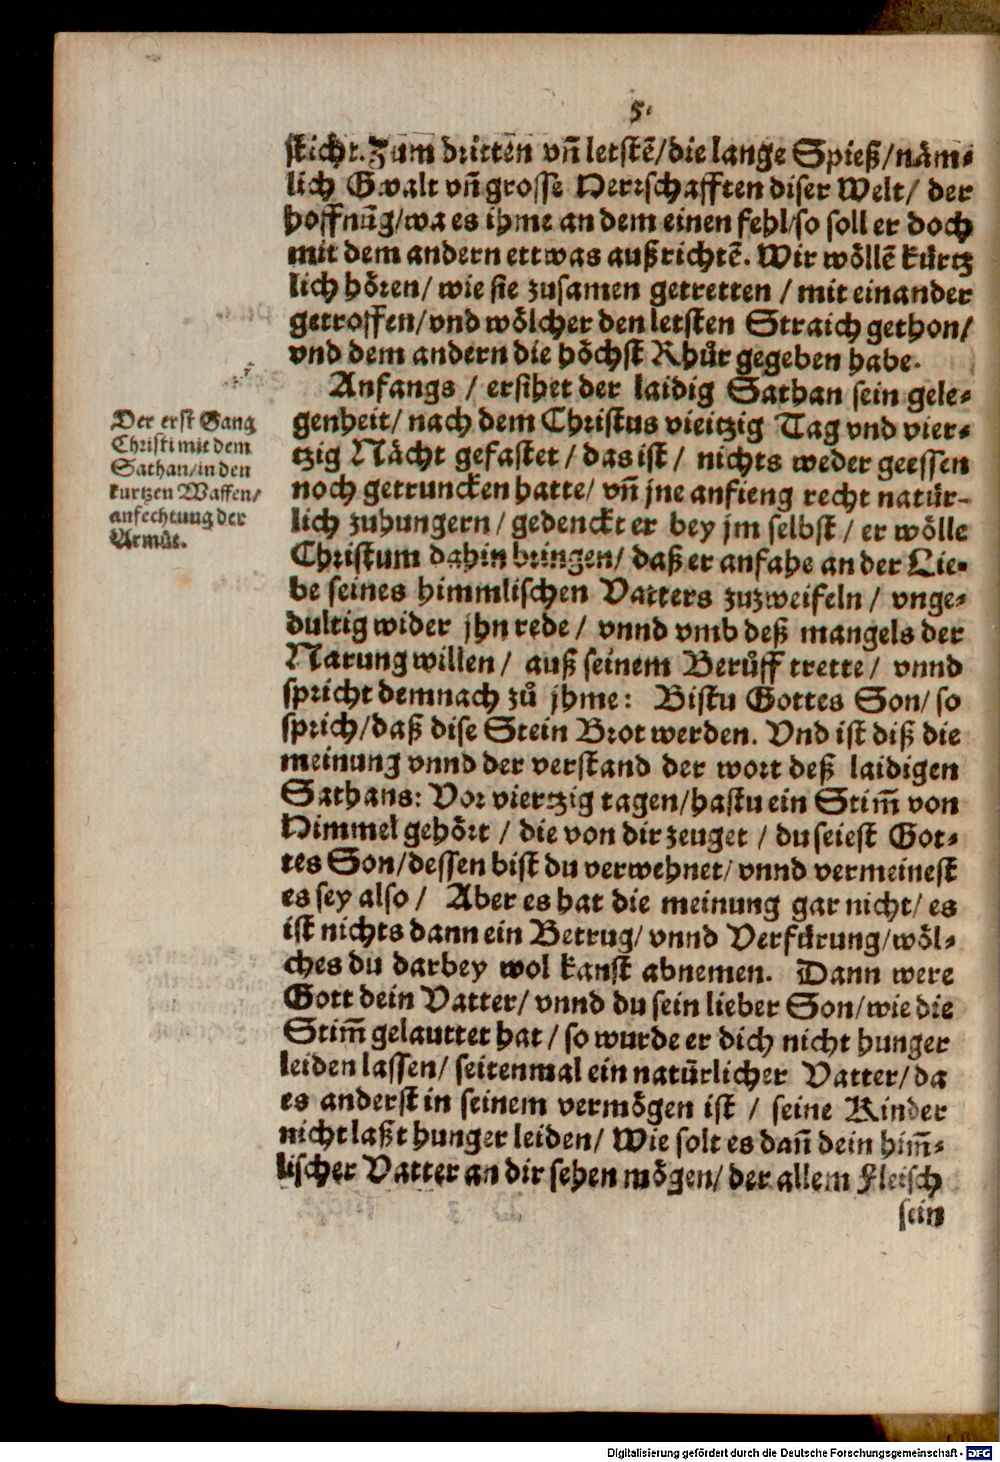 5.
sticht. Zum dritten vñ letstẽ/die lange Spieß/näm-
lich Gwalt vñ grosse Herrschafften diser Welt/ der
hoffnũg/wa es ihme an dem einen fehl/so soll er doch
mit dem andern ettwas außrichtẽ. Wir wöllẽ kürtz
lich hören/ wie sie zusamen getretten / mit einander
getroffen/vnd wölcher den letsten Straich gethon/
vnd dem andern die höchst Rhůr gegeben habe.
Anfangs / ersihet der laidig Sathan sein gele-
genheit/ nach dem Christus vieitzig Tag vnd vier-
tzig Nächt gefastet / das ist / nichts weder geessen
noch getruncken hatte/ vñ jne anfieng recht natür-
lich zuhungern / gedenckt er bey jm selbst / er wölle
Christum dahin bringen/ daß er anfahe an der Lie-
be seines himmlischen Vatters zuzweifeln / vnge-
dultig wider jhn rede / vnnd vmb deß mangels der
Narung willen / auß seinem Berůff trette / vnnd
spricht demnach zů jhme: Bistu Gottes Son/ so
sprich/daß dise Stein Brot werden. Vnd ist diß die
meinung vnnd der verstand der wort deß laidigen
Sathans: Vor viertzig tagen/hastu ein Stim̃ von
Himmel gehört / die von dir zeuget / du seiest Got-
tes Son/dessen bist du verwehnet/ vnnd vermeinest
es sey also / Aber es hat die meinung gar nicht/ es
ist nichts dann ein Betrug/ vnnd Verfürung/wöl-
ches du darbey wol kanst abnemen. Dann were
Gott dein Vatter/ vnnd du sein lieber Son/wie die
Stim̃ gelauttet hat / so wurde er dich nicht hunger
leiden lassen/ seitenmal ein natürlicher Vatter/ da
es anderst in seinem vermögen ist / seine Kinder
nicht laßt hunger leiden/ Wie solt es dañ dein him̃-
lischer Vatter an dir sehen mögen/ der allem Fleisch
sein
Der erst Gang
Christi mit dem
Sathan/in den
kurtzen Waffen/
anfechtung der
Armůt.
Digitalisierung gefördert durch die Deutsche Forschungsgemeinschaft - DFG